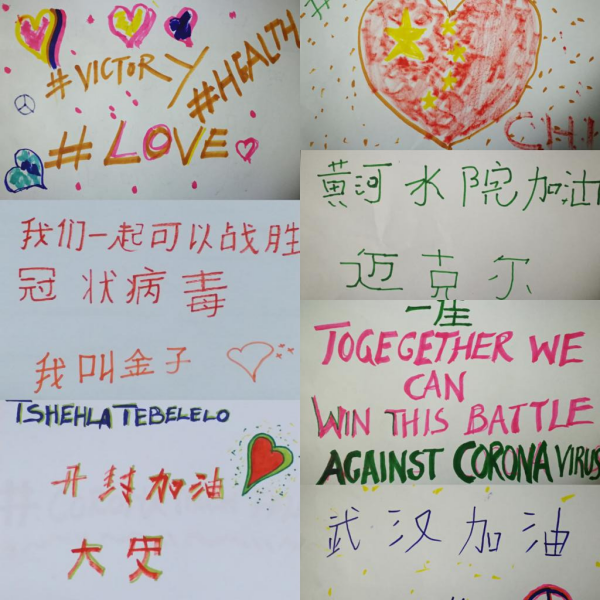 #VICTORY
#HEALTH
#LOVE
CHI
黄河水院加油
迈克尔
我们一起可以战胜
冠状病毒
我叫金子
TOGEGETHER WE
CAN
WIN THIS BATTLE
AGAINST CORONA VIRUS
TSHEHLA TEBELELO
开封加油
大史
武汉加油